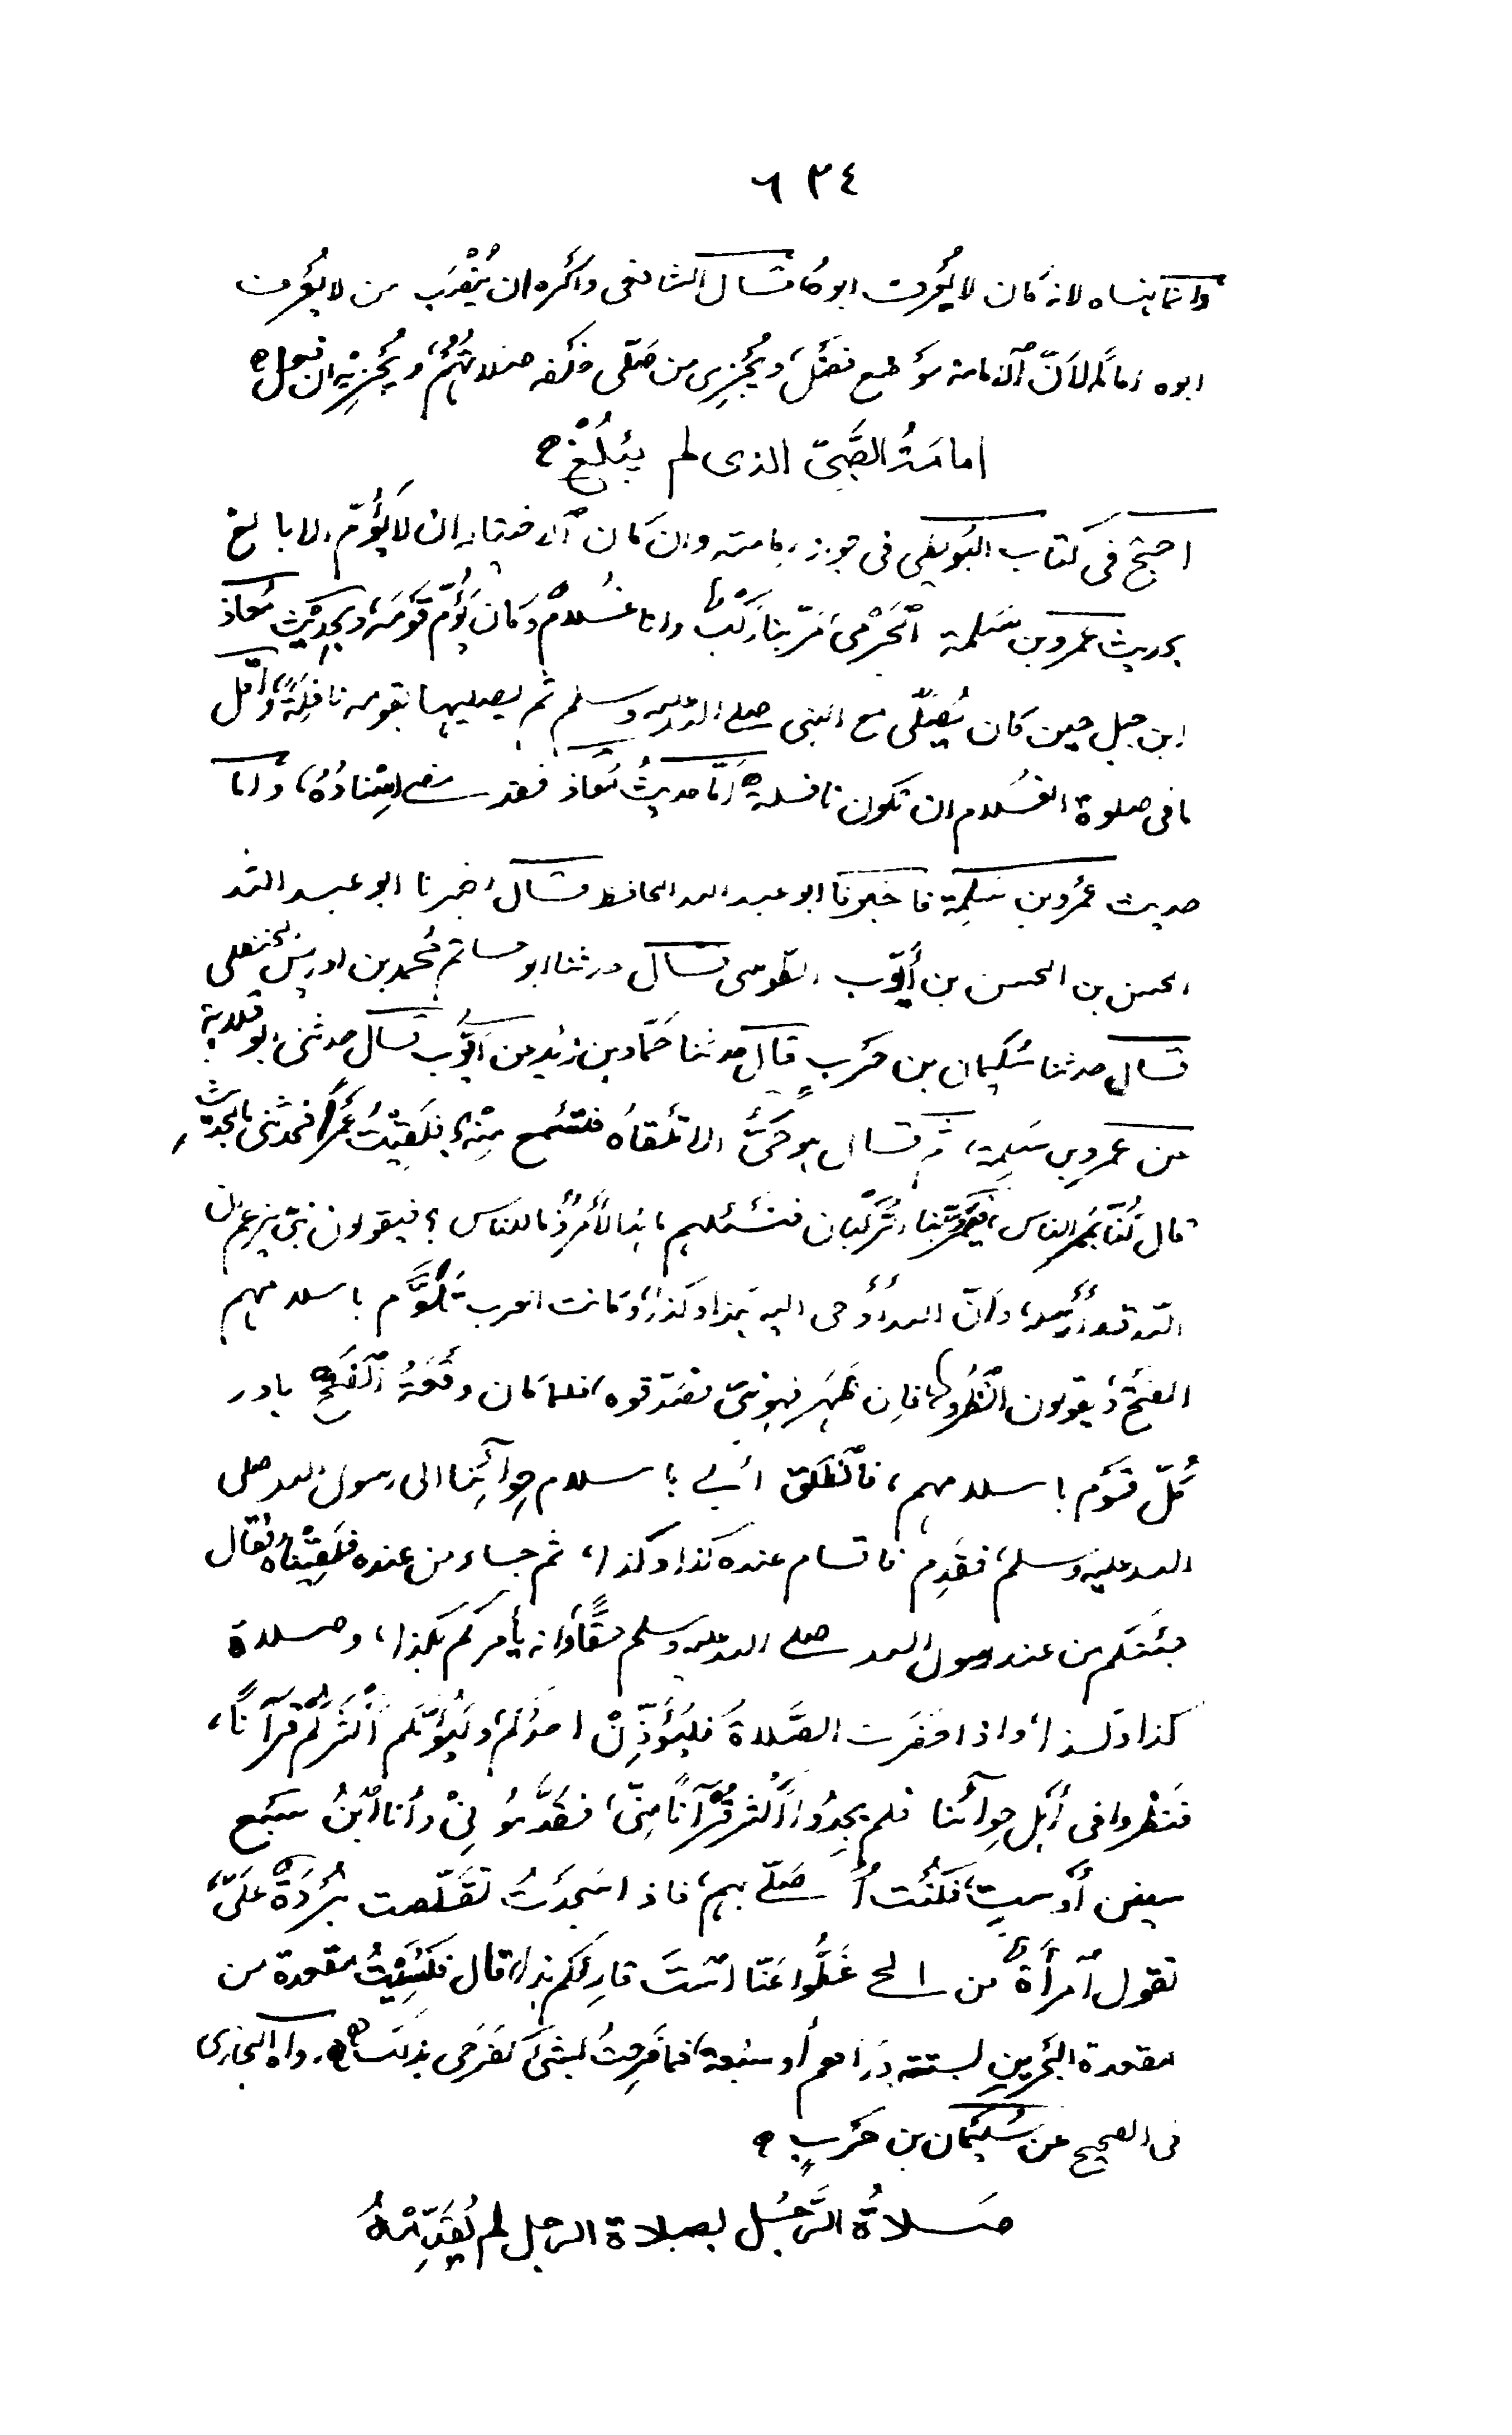 ٦٣٤
وانما نهاه لانه كان لا يُعرف ابوه قال الشافعى واكره ان يُنْصَب من لا يُعرف
ابوه اماما لأنّ الامامة موضع فضل، ويُجزى من صَلّى خلفه صلاتُهُمْ، ويُجْزِيه ان فعل ه
امامَةُ الصَّبىّ الذى لم يَبْلُغْ ه
احتج فى كتاب البُوَيطى فى جواز امامته وان كان الاختيار ان لا يؤُمّ الا بالغ
بحديث عَمرو بن سَلِمة الجَرْمى، مَرّ بنا رَكْبٌ وانا غُلامٌ وكان يَؤُمّ قَوْمَهُ، وبحديث مُعَاذ
ابن جبل حين كان يُصَلّى مع النبى صلى الله عليه وسلم ثم يصليها بقومه نافِلَةً، وأقل
ما فى صلوة الغُلام ان تكون نافلة ه أمّا حديثُ مُعَاذ فقد مضى إسْنادُهُ، واما
حديث عَمْرو بن سَلِمَة فاخبرنا ابو عبد الله الحافظ قال اخبرنا ابو عبد الله
الحسن بن الحسن بن أيّوب الطوسى قال حدثنا ابو حاتم مُحمد بن ادريس الحنظلى
قال حدثنا سُليمان بن حَرب قال حدثنا حَمّاد بن زيد عن أيّوب قال حدثنى ابو قلابة
عن عمرو بن سَلِمة، ثم قال هو حَىٌّ الا تلقاه فتسمع مِنْهُ، فلَقيتُ عَمْرًا فحدثنى بالحديث
قال كُنّا بمَمَرّ الناس، فيَمُرّ بنا الرُّكْبان فنسئلهم ما هذا الأمْرُ وما للناس؟ فيقولون نبىّ يزعم ان
الله قد أَرْسله، وأنّ الله أَوْحى اليه كذا وكذا، وكانت العرب تَلَوَّم باسلامهم
الفتحَ، ويقولون انْظُروا، فان ظَهَر فهو نبىّ فصَدّقوه، فلما كان وَقْعَةُ الفَتْح بادر
كُلّ قَوْم باسلامهم، فانْطَلَق أبى باسلام حِوَائنا الى رسول الله صلى
الله عليه وسلم، فقَدِم فاقام عنده كذا وكذا، ثم جاء من عنده فلَقِيْناه فقال
جئتكم من عند رسول الله صلى الله عليه وسلم حقًّا، وانه يأمركم بكذا، وصلاة
كذا وكذا، واذا حَضَرت الصَّلاةُ فليُؤَذِّنْ احدُكم، وليَؤُمّكم أكْثَرُكُم قرآنًا،
فنظروا فى أهل حِوائنا فلم يجِدُوا أكْثر قُرْآنًا مِنّى، فقَدَّمُونِىْ وأنا ابْنُ سَبْع
سنين أو سِتٍّ، فكُنْت أُصَلّى بهم، فاذا سَجَدْتُ تقلّصت بُرْدَةٌ عَلَىّ،
تقول امْرأةٌ من الحى غَطُّوا عَنّا اسْتَ قارِئكم هذا، قال فكُسِيْتُ معقدة من
معقدة البَحْرين بستة دراهم أو سَبْعة، فما فَرِحتُ بشىء كفَرَحى بذلك ه رواه البخارى
فى الصحيح عن سُلَيْمَان بن حَربٍ ه
صَلاةُ الرَّجُل بصلاة الرجل لم يُقَدِّمْهُ